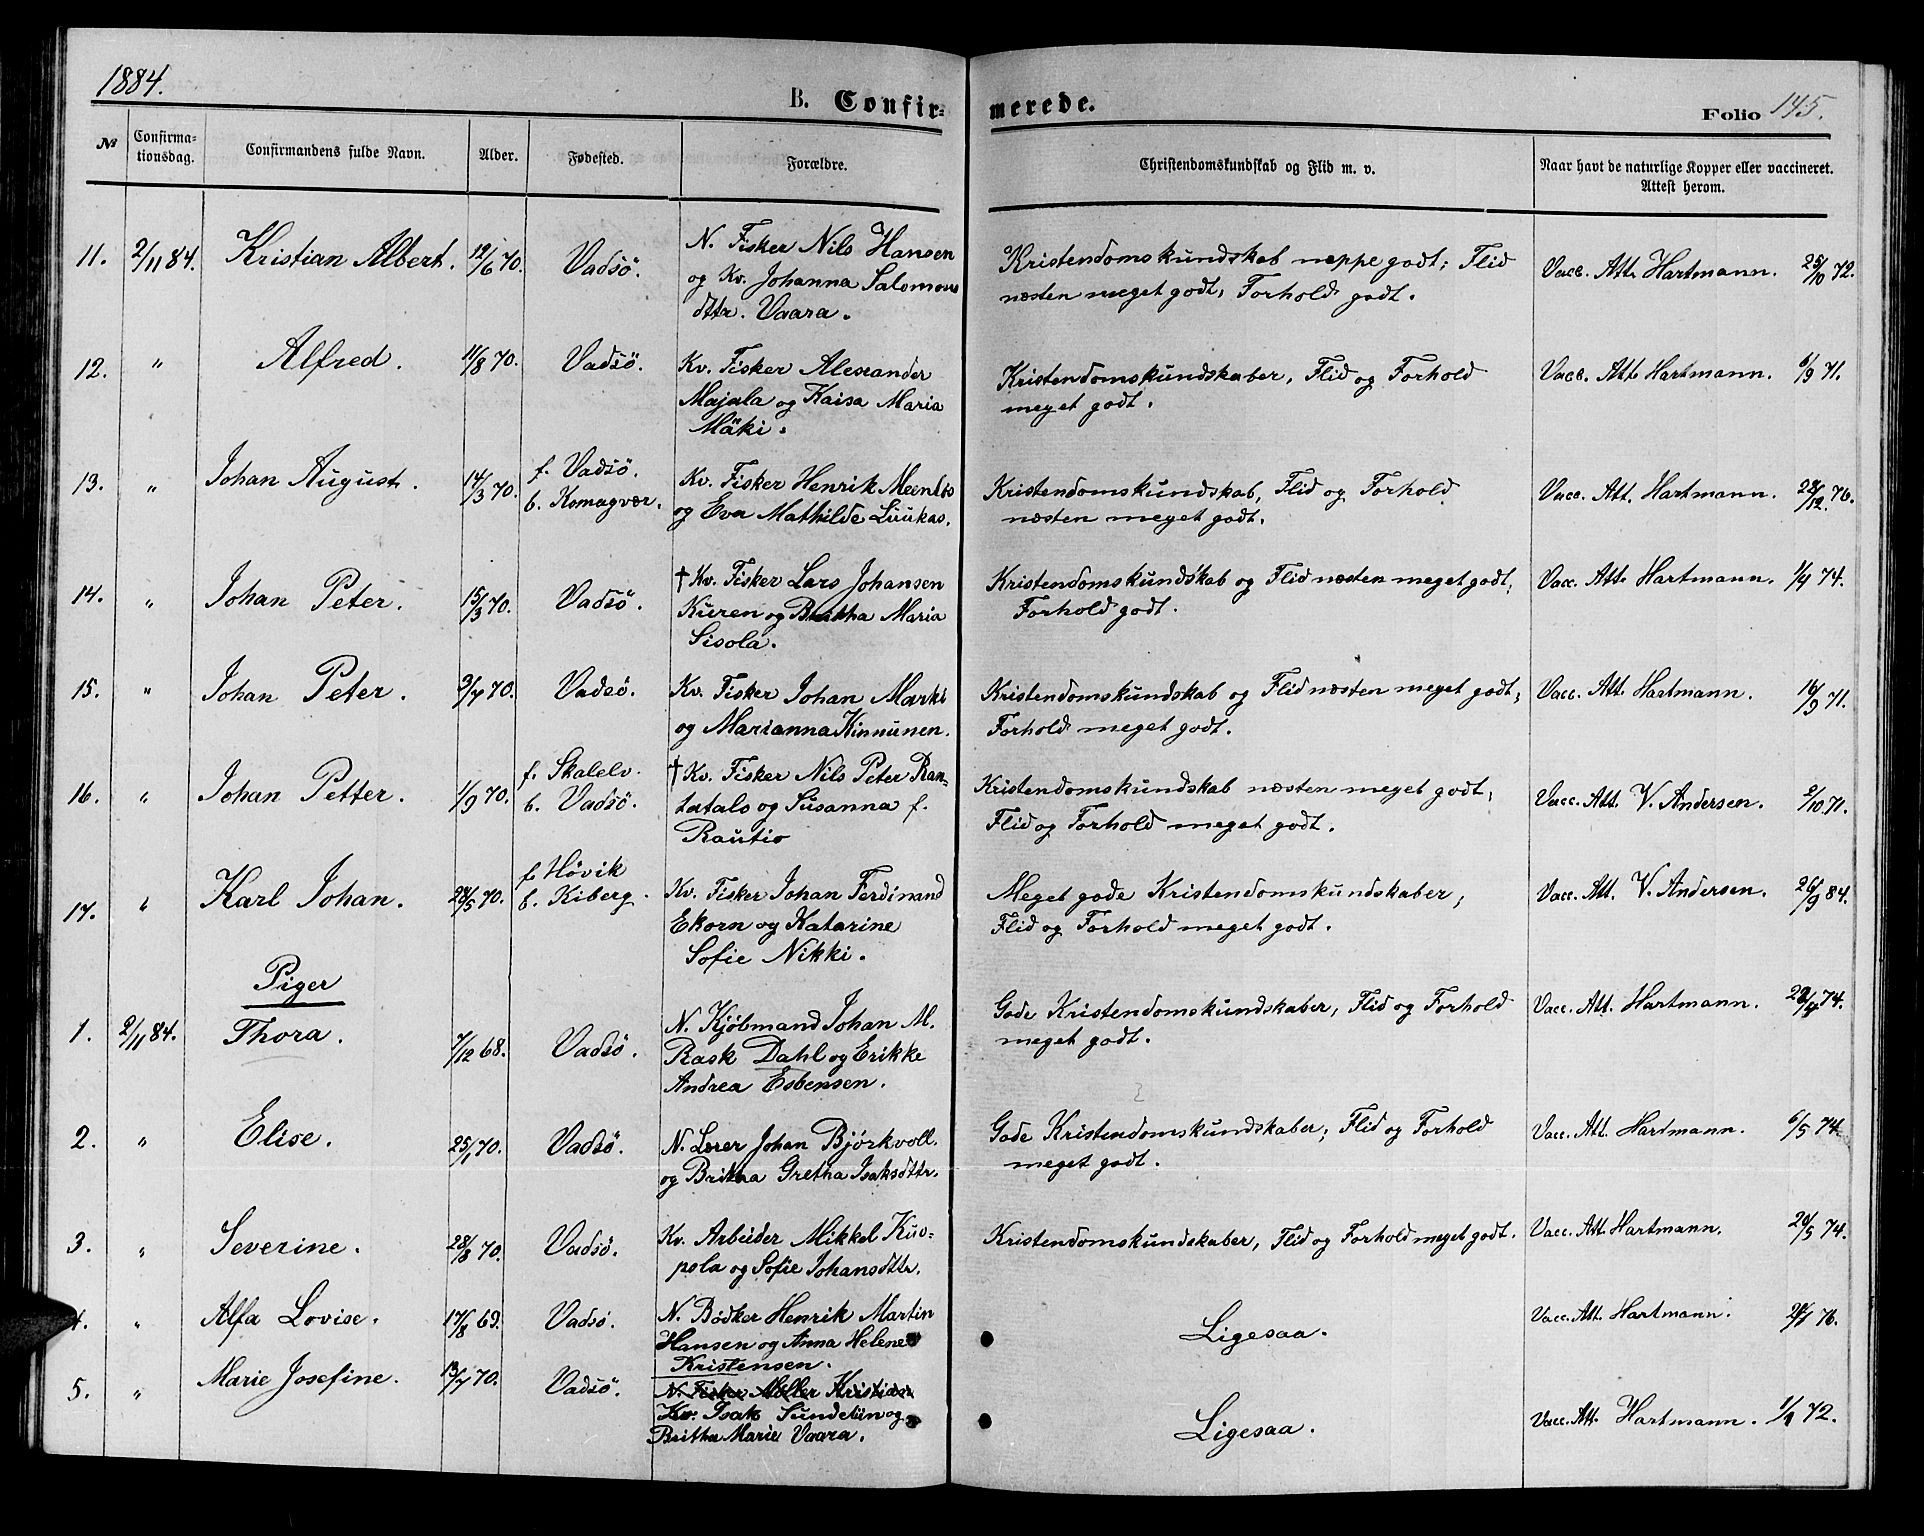 1884.
B. Confirmerede.
Folio 145.
№ Confirmationsdag. Confirmandens fulde Navn. Alder. Fødested. Forældre. Christendomskundskab og Flid m. v. Naar havt de naturlige Kopper eller vaccineret. Attest herom.
11. 2/11 84. Kristian Albert. 12/6 70. Vadsö. N. Fisker Nils Hansen
og Kv. Johanna Salomons
dttr. Vaara.
Kristendomskundskab neppe godt; Flid
næsten meget godt, Forhold godt.
Vacc. Att. Hartmann. 25/10 72.
12. " Alfred. 11/8 70. Vadsö. Kv. Fisker Alexander
Majala og Kaisa Maria
Mäki.
Kristendomskundskaber, Flid og Forhold
meget godt.
Vacc. Att. Hartmann. 6/9 71.
13. " Johan August. 14/3 70. f. Vadsö.
b. Komagvær.
Kv. Fisker Henrik
og Eva Mathilde Luukas.
Kristendomskundskab, Flid og Forhold
næsten meget godt.
Vacc. Att. Hartmann. 28/12. 76.
14. " Johan Peter. 15/3 70. Vadsö. † Kv. Fisker Lars Johansen
Kuren og Britha Maria
Sisola.
Kristendomskundskab og Flid næsten meget godt;
Forhold godt.
Vacc. Att. Hartmann. 74.
15. " Johan Peter. 70. Vadsö. Kv. Fisker Johan Marki
og Marianna Kinnunen.
Kristendomskundskab og Flid næsten meget godt;
Forhold meget godt.
Vacc. Att. Hartmann. 16/9 71.
16. " Johan Petter. 1/9 70. f. Skalelv.
b. Vadsö.
† Kv. Fisker Nils Peter Ran-
tatalo og Susanna f.
Rautio
Kristendomskundskab næsten meget godt;
Flid og Forhold meget godt.
Vacc. Att. V. Andersen. 2/10. 71.
17. " Karl Johan. 28/5 70. f. Hövik
b. Kiberg.
Kv. Fisker Johan Ferdinand
Ekorn og Katarine
Sofie Nikki.
Meget gode Kristendomskundskaber;
Flid og Forhold meget godt.
Vacc. Att. V. Andersen. 26/9 84.
Piger
1. 2/11 84. Thora. 7/12 68. Vadsö. N. Kjöbmand Johan M.
Rask Dahl og Erikke
Andrea Esbensen.
Gode Kristendomskundskaber, Flid og Forhold
meget godt.
Vacc. Att. Hartmann. 74.
2. " Elise. 25/1 70. Vadsö. N. Lærer Johan Bjórkvoll.
og Britha Gretha Isaksdttr.
Gode Kristendomskundskaber; Flid og Forhold
meget godt.
Vacc. Att. Hartmann. 6/5 74.
3. " Severine. 28/8 70. Vadsö. Kv. Arbeider Mikkel Kuo-
pola og Sofie Johansdttr.
Kristendomskundskaber, Flid og Forhold meget godt.
Vacc. Att. Hartmann. 20/5 74.
4. " Alfa Lovise. 17/8 69. Vadsö. N. Bödker Henrik Martin
Hansen og Anna Helene
Kristensen.
Ligesaa.
Vacc. Att. Hartmann. 76.
5. " Marie Josefine. 70. Vadsö. N. Fisker Möller Kristian
Kv. Isak Sundelin og
Britha Marie Vaara.
Ligesaa.
Vacc. Att. Hartmann. 72.